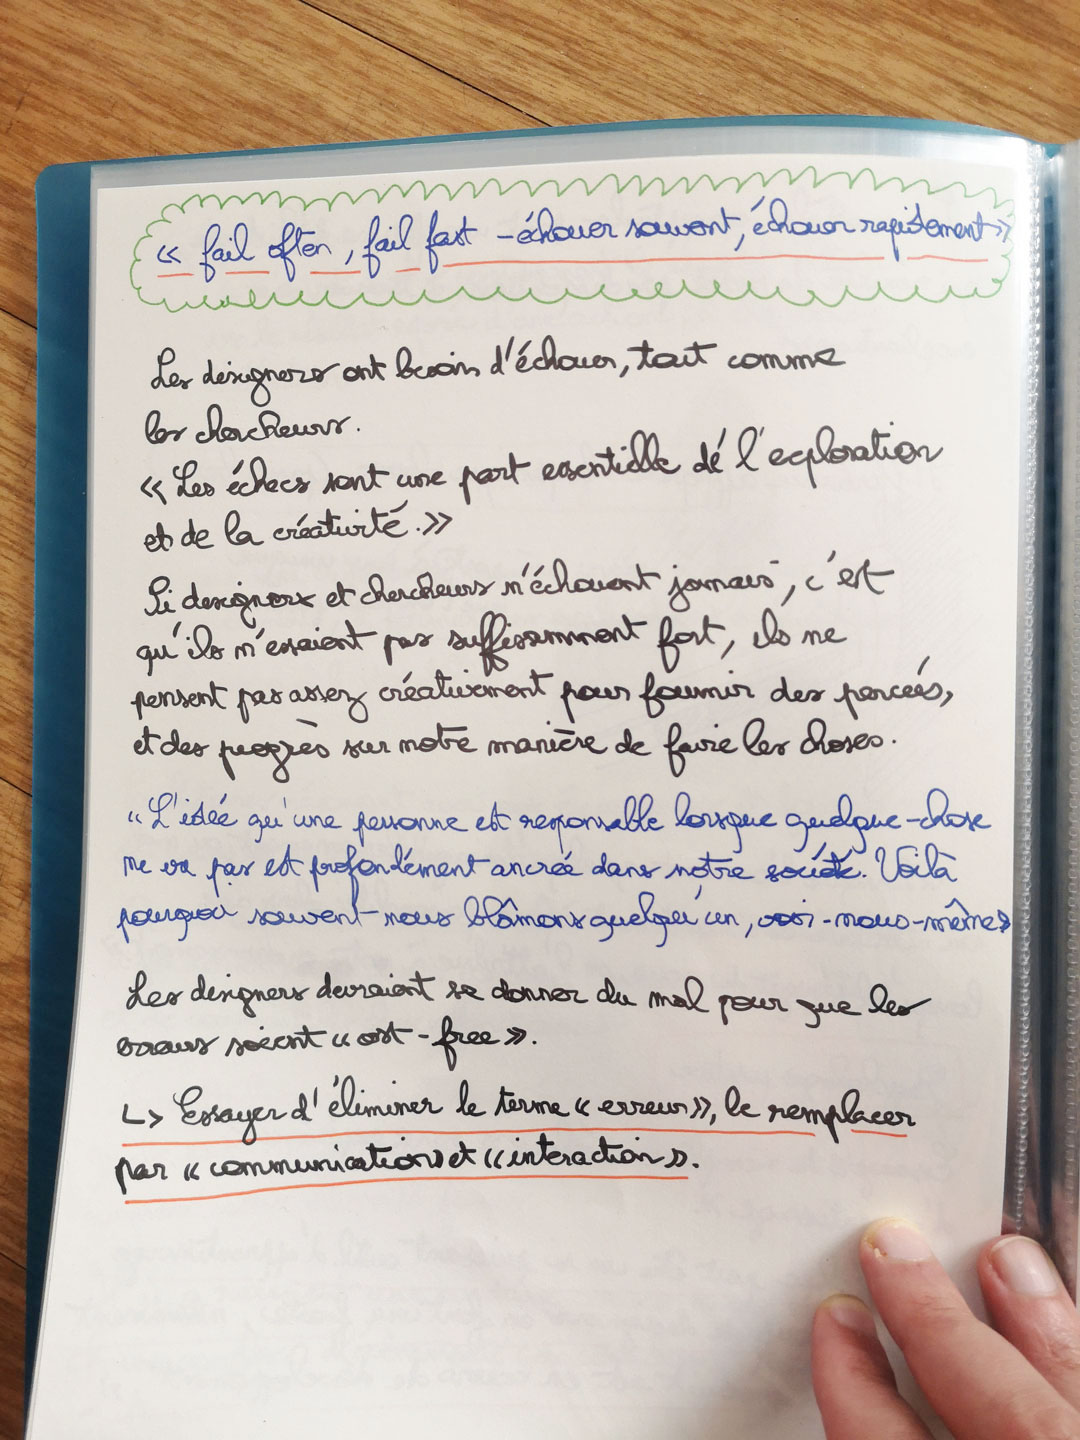 « fail often, fail fast - échouer souvent, échouer rapidement »
Les designers ont besoin d'échouer, tout comme
les chercheurs.
« Les échecs sont une part essentielle de l'exploration
et de la créativité. »
Si designers et chercheurs n'échouent jamais, c'est
qu'ils n'essaient pas suffisamment fort, ils ne
pensent pas assez créativement pour fournir des percées,
et des progrès sur notre manière de faire les choses.
"L'idée qu'une personne est responsable lorsque quelque-chose
ne va pas est profondément ancrée dans notre société. Voilà
pourquoi souvent nous blâmons quelqu'un, voir-nous-même »
Les designers devraient se donner du mal pour que les
erreurs soient « ost-free ».
↳ Essayer d'éliminer le terme « erreur », le remplacer
par « communication » et « interaction ».